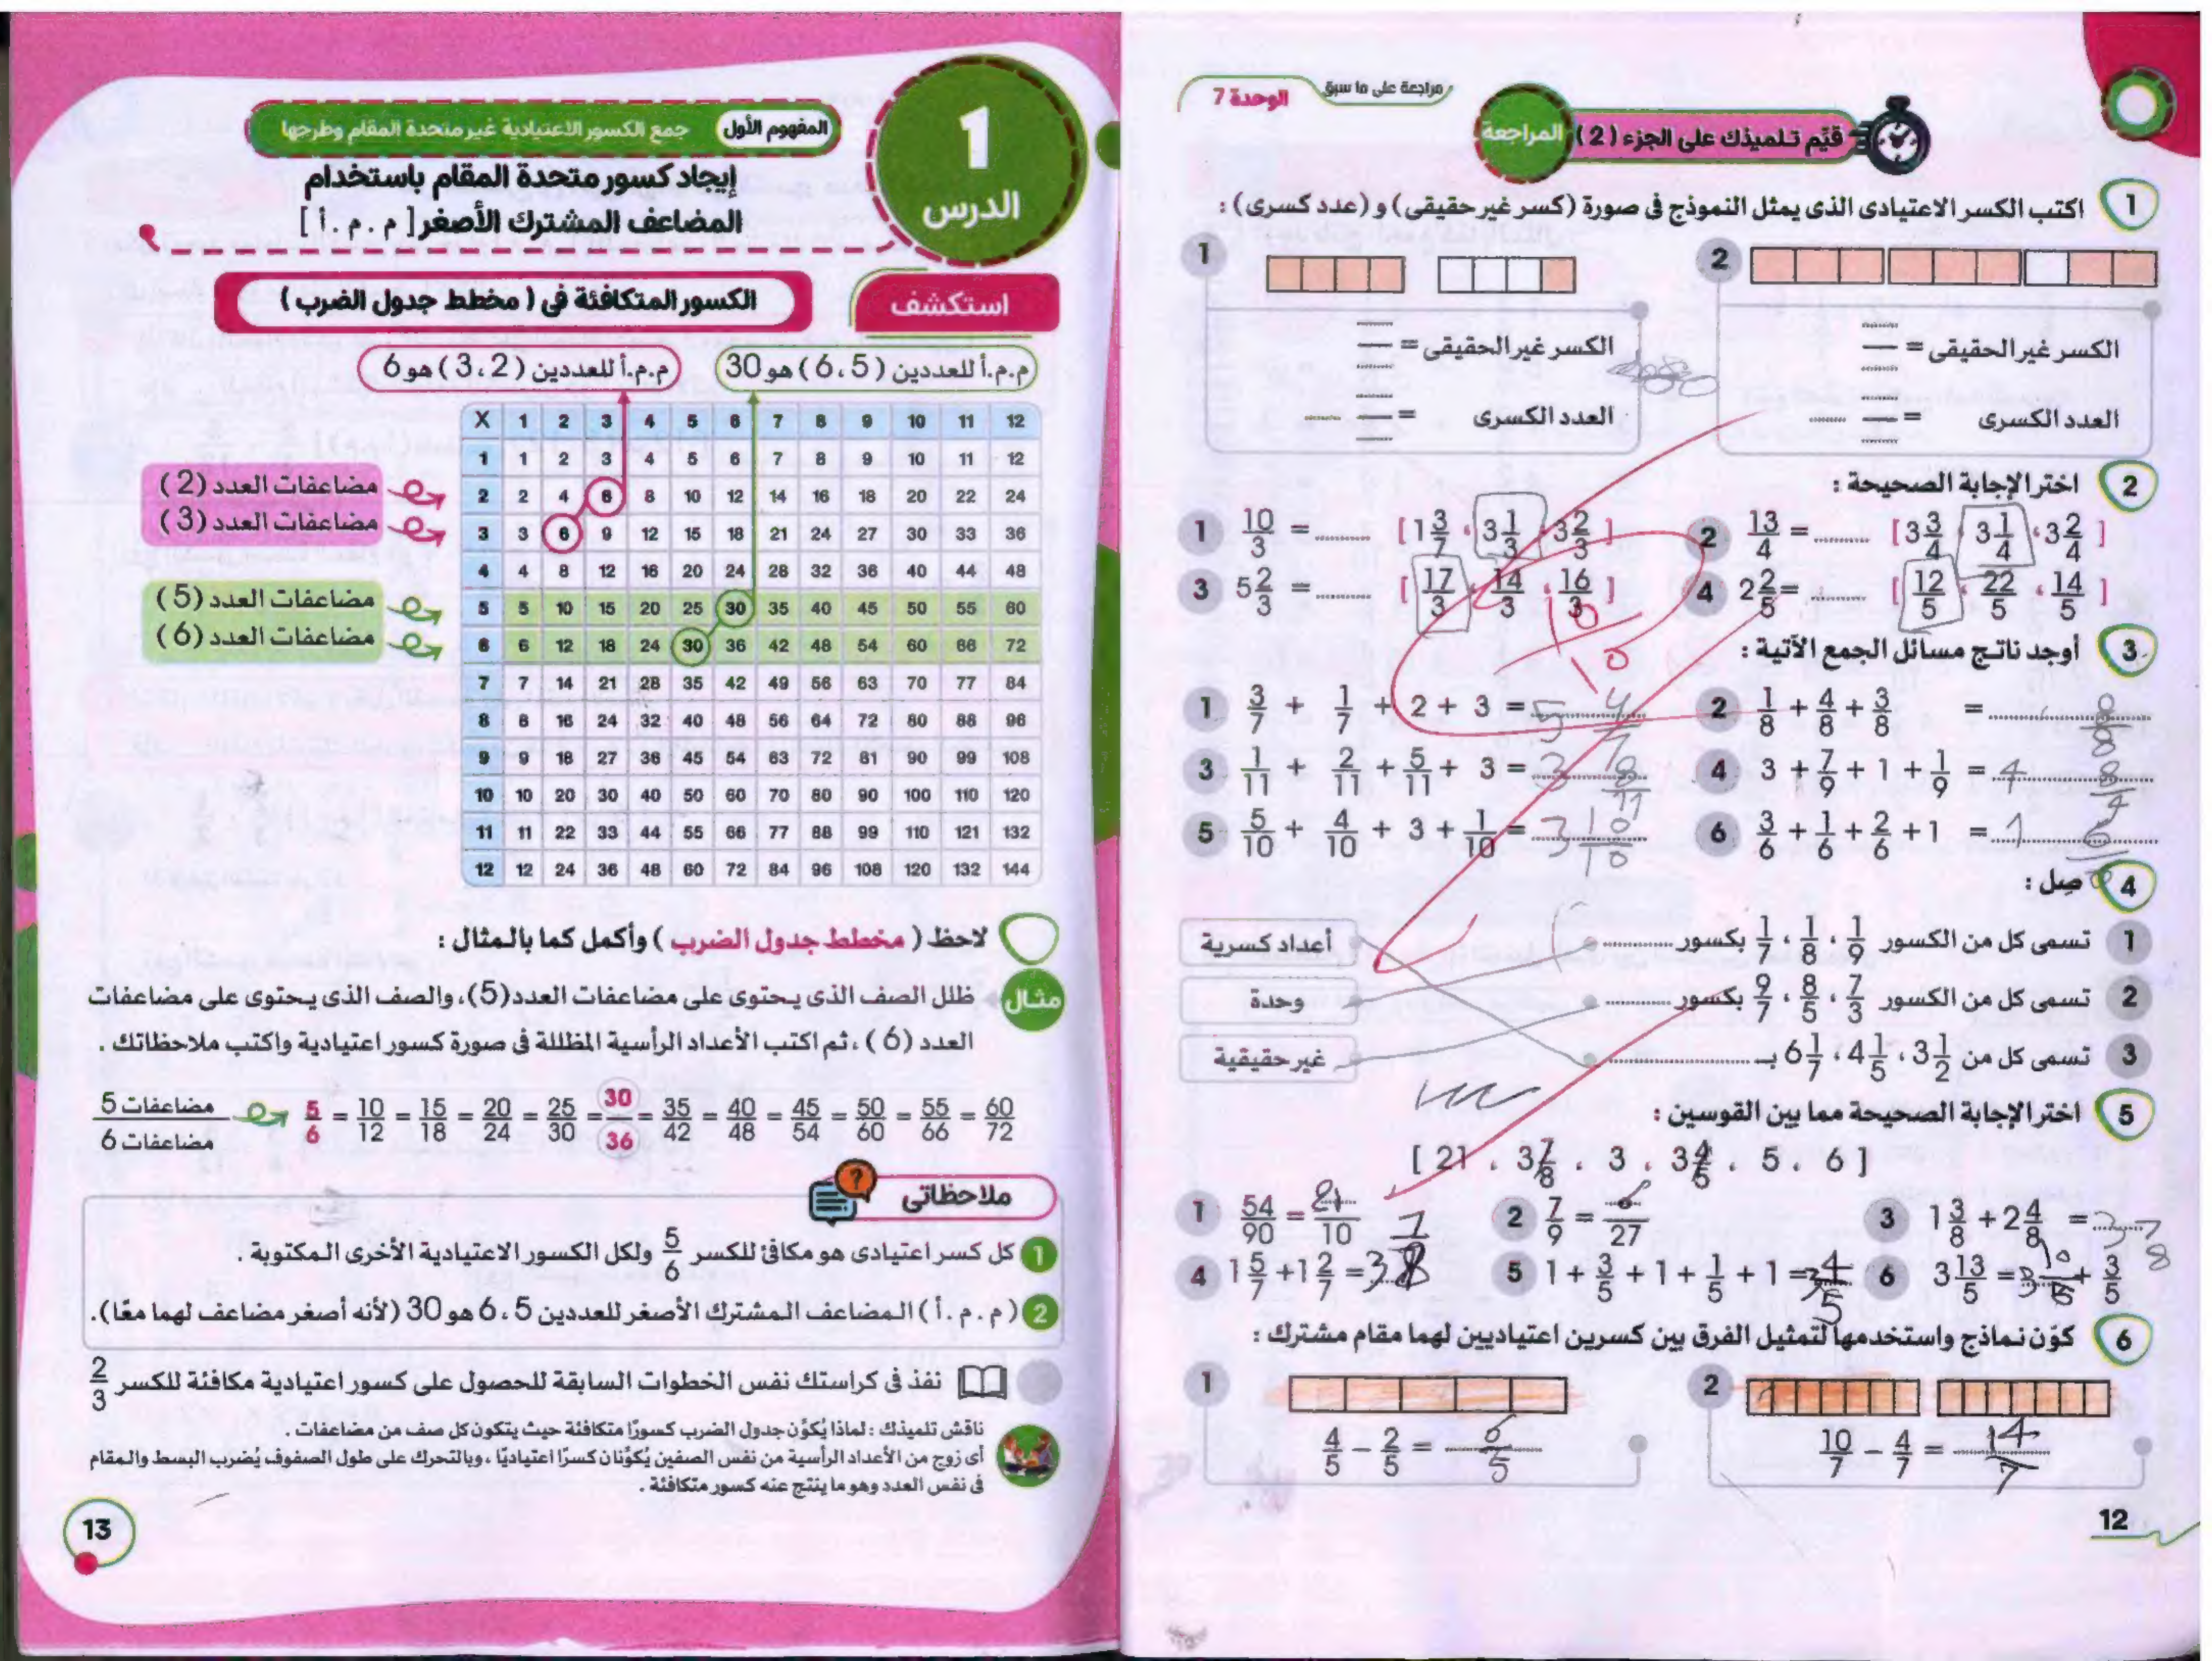 مراجعة على ما سبق
الوحدة 7
قيِّم تلميذك على الجزء (2) المراجعة
1 اكتب الكسر الاعتيادى الذى يمثل النموذج فى صورة (كسر غير حقيقى) و (عدد كسرى) :
1 2
الكسر غير الحقيقى = الكسر غير الحقيقى =
العدد الكسرى = العدد الكسرى =
2 اختر الإجابة الصحيحة :
1 10/3 = ........ [1 3/7 ، 3 1/3 ، 3 2/3]
2 13/4 = ........ [3 3/4 ، 3 1/4 ، 3 2/4]
3 5 2/3 = ........ [17/3 ، 14/3 ، 16/3]
4 2 2/5 = ........ [12/5 ، 22/5 ، 14/5]
10/10
3 أوجد ناتج مسائل الجمع الآتية :
1 3/7 + 1/7 + 2 + 3 = 5 4/7
2 1/8 + 4/8 + 3/8 = 8/8
3 1/11 + 2/11 + 5/11 + 3 = 3 8/11
4 3 + 7/9 + 1 + 1/9 = 4 8/9
5 5/10 + 4/10 + 3 + 1/10 = 3 10/10
6 3/6 + 1/6 + 2/6 + 1 = 1 6/6
4 صِل :
1 تسمى كل من الكسور 1/9 ، 1/8 ، 1/7 بكسور ............ أعداد كسرية
2 تسمى كل من الكسور 7/3 ، 8/5 ، 9/7 بكسور ............ وحدة
3 تسمى كل من 3 1/2 ، 4 1/5 ، 6 1/7 بـ ............ غير حقيقية
5 اختر الإجابة الصحيحة مما بين القوسين :
[ 21 ، 3 7/8 ، 3 ، 3 4/5 ، 5 ، 6 ]
1 54/90 = 21/10
2 7/9 = 6/27
3 1 3/8 + 2 4/8 = 3 7/8
4 1 5/7 + 1 2/7 = 3
5 1 + 3/5 + 1 + 1/5 + 1 = 3 4/5
6 3 13/5 = 3 10/5 + 3/5
6 كوّن نماذج واستخدمها لتمثيل الفرق بين كسرين اعتياديين لهما مقام مشترك :
1 4/5 - 2/5 = 6/5
2 10/7 - 4/7 = 14/7
12
1 الدرس
المفهوم الأول جمع الكسور الاعتيادية غير متحدة المقام وطرحها
إيجاد كسور متحدة المقام باستخدام
المضاعف المشترك الأصغر [ م . م . أ ]
استكشف الكسور المتكافئة فى ( مخطط جدول الضرب )
م.م.أ للعددين ( 6،5 ) هو 30 م.م.أ للعددين ( 3،2 ) هو 6
X 1 2 3 4 5 6 7 8 9 10 11 12
1 1 2 3 4 5 6 7 8 9 10 11 12
مضاعفات العدد ( 2 ) 2 2 4 6 8 10 12 14 16 18 20 22 24
مضاعفات العدد ( 3 ) 3 3 6 9 12 15 18 21 24 27 30 33 36
4 4 8 12 16 20 24 28 32 36 40 44 48
مضاعفات العدد ( 5 ) 5 5 10 15 20 25 30 35 40 45 50 55 60
مضاعفات العدد ( 6 ) 6 6 12 18 24 30 36 42 48 54 60 66 72
7 7 14 21 28 35 42 49 56 63 70 77 84
8 8 16 24 32 40 48 56 64 72 80 88 96
9 9 18 27 36 45 54 63 72 81 90 99 108
10 10 20 30 40 50 60 70 80 90 100 110 120
11 11 22 33 44 55 66 77 88 99 110 121 132
12 12 24 36 48 60 72 84 96 108 120 132 144
لاحظ ( مخطط جدول الضرب ) وأكمل كما بالمثال :
مثال ظلل الصف الذى يحتوى على مضاعفات العدد (5)، والصف الذى يحتوى على مضاعفات
العدد ( 6 ) ، ثم اكتب الأعداد الرأسية المظللة فى صورة كسور اعتيادية واكتب ملاحظاتك .
مضاعفات 5 / مضاعفات 6 5/6 = 10/12 = 15/18 = 20/24 = 25/30 = 30/36 = 35/42 = 40/48 = 45/54 = 50/60 = 55/66 = 60/72
ملاحظاتى
1 كل كسر اعتيادى هو مكافئ للكسر 5/6 ولكل الكسور الاعتيادية الأخرى المكتوبة .
2 ( م . م . أ ) المضاعف المشترك الأصغر للعددين 5 ، 6 هو 30 (لأنه أصغر مضاعف لهما معًا).
نفذ فى كراستك نفس الخطوات السابقة للحصول على كسور اعتيادية مكافئة للكسر 2/3
ناقش تلميذك : لماذا يُكوِّن جدول الضرب كسورًا متكافئة حيث يتكون كل صف من مضاعفات .
أى زوج من الأعداد الرأسية من نفس الصفين يُكوِّنان كسرًا اعتياديًا ، وبالتحرك على طول الصفوف يُضرب البسط والمقام
فى نفس العدد وهو ما ينتج عنه كسور متكافئة .
13